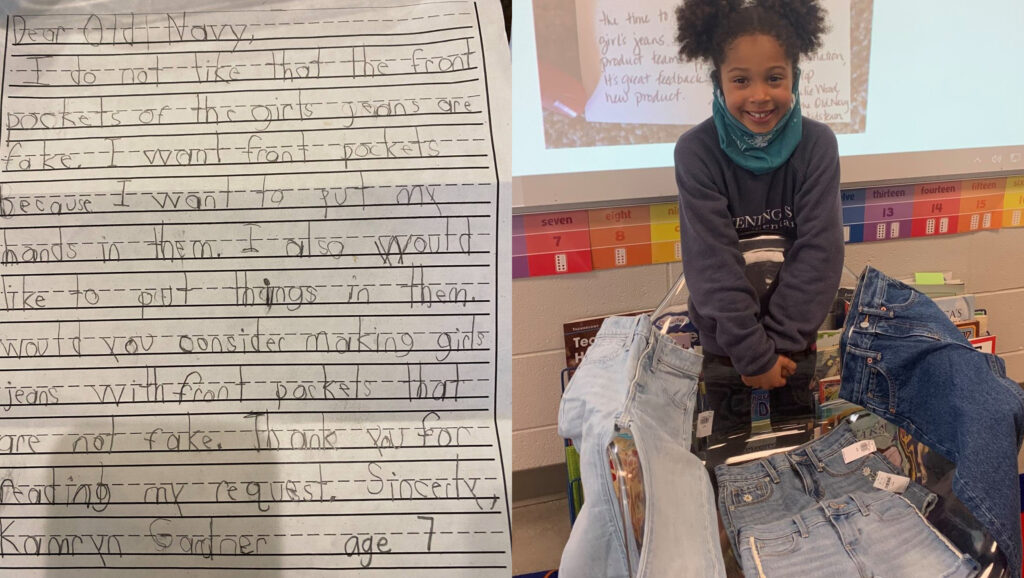 Dear Old Navy,
I do not like that the front
pockets of the girls jeans are
fake. I want front pockets
because I want to put my
hands in them. I also would
like to put things in them.
would you consider making girls
jeans with front pockets that
are not fake. Thank you for
reading my request. Sincerly,
Kamryn Gardner age 7
the time to
girl's jeans
product team
It's great feedback
new product.
Old Navy
seven
7
eight
8
thirteen
13
fourteen
14
fifteen
15